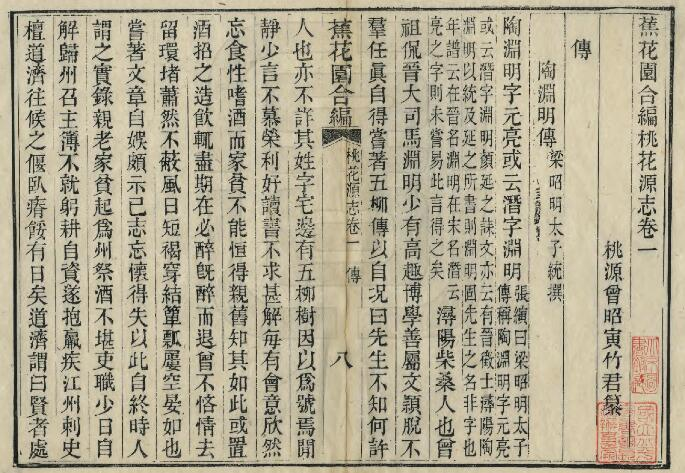 蕉花園合編桃花源志卷一
桃源曾昭寅竹君纂
傳
陶淵明傳 梁昭明太子統撰
陶淵明字元亮或云潛字淵明
張縯曰梁昭明太子
傳稱陶淵明字元亮
或云潛字淵明顏延之誄文亦云有晉徵士潯陽陶
淵明以統及延之所書則淵明固先生之名非字也
年譜云在晉名淵明在宋名潛元
亮之字則未嘗易此言得之矣
潯陽柴桑人也曾
祖侃晉大司馬淵明少有高趣博學善屬文穎脫不
羣任眞自得嘗著五柳傳以自況曰先生不知何許
蕉花園合編 桃花源志卷一 傳 八
人也亦不詳其姓字宅邊有五柳樹因以爲號焉閒
靜少言不慕榮利好讀書不求甚解每有會意欣然
忘食性嗜酒而家貧不能恒得親舊知其如此或置
酒招之造飲輒盡期在必醉旣醉而退曾不悋情去
留環堵蕭然不蔽風日短褐穿結簞瓢屢空晏如也
嘗著文章自娛頗示己志忘懷得失以此自終時人
謂之實錄親老家貧起爲州祭酒不堪吏職少日自
解歸州召主簿不就躬耕自資遂抱羸疾江州刺史
檀道濟往候之偃臥瘠餒有日矣道濟謂曰賢者處